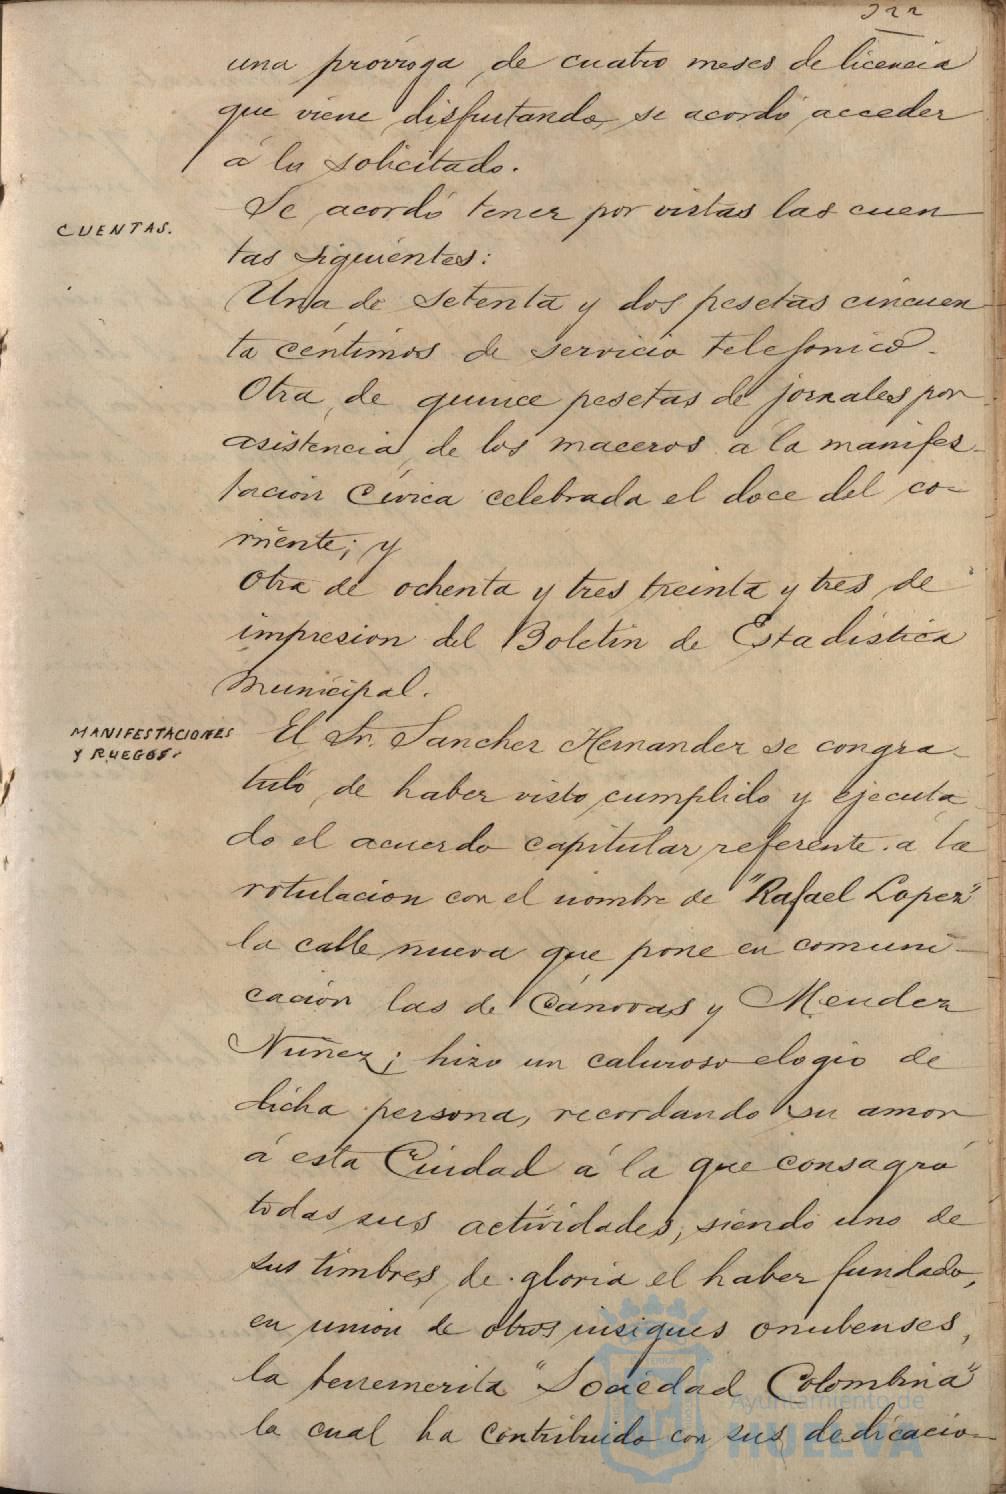 322
una prórroga de cuatro meses de licencia
que viene disfrutando, se acordó acceder
á lo solicitado.
CUENTAS.
Se acordó tener por vistas las cuen
tas siguientes:
Una de setenta y dos pesetas cincuen
ta céntimos de servicio telefonico.
Otra de quince pesetas de jornales por
asistencia de los maceros a la manifes-
tación Cívica celebrada el doce del co-
rriente; y
Otra de ochenta y tres treinta y tres de
impresion del Boletin de Estadistica
Municipal.
MANIFESTACIONES
Y RUEGOS.
El Sr. Sanchez Hernandez se congra-
tuló de haber visto cumplido y ejecuta
do el acuerdo capitular referente á la
rotulacion con el nombre de "Rafael Lopez"
la calle nueva que pone en comuni-
cación las de Cánovas y Mendez
Nuñez; hizo un caluroso elogio de
dicha persona, recordando su amor
á esta Ciudad á la que consagró
todas sus actividades, siendo uno de
sus timbres de gloria el haber fundado,
en union de otros insignes onubenses,
la benemerita "Sociedad Colombina"
la cual ha contribuido con sus dedicacio-
Ayuntamiento de
HUELVA